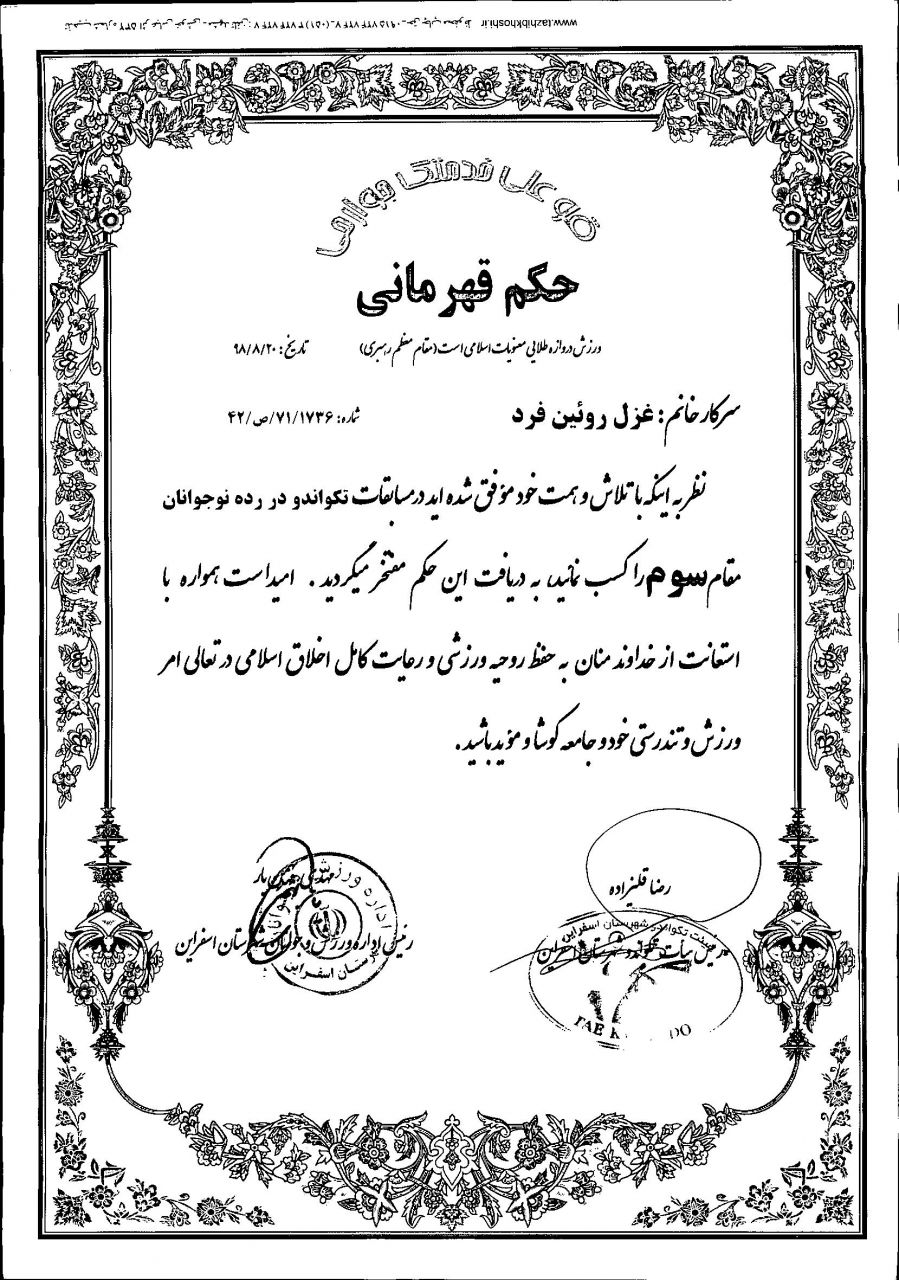 قو علی خدمتک جوارحی
حکم قهرمانی
ورزش دروازه طلایی معنویات اسلامی است (مقام معظم رهبری) تاریخ: ۹۸/۸/۲۰
سرکار خانم: غزل روئین فرد شماره: ۴۲/ص/۷۱/۱۷۳۶
نظر به اینکه با تلاش و همت خود مؤفق شده اید در مسابقات تکواندو در رده نوجوانان
مقام سوم را کسب نمائید، به دریافت این حکم مفتخر میگردید. امید است همواره با
استعانت از خداوند منان به حفظ روحیه ورزشی و رعایت کامل اخلاق اسلامی در تعالی امر
ورزش و تندرستی خود و جامعه کوشا و مؤید باشید.
رضا قلیزاده
رئیس هیأت تکواندو شهرستان اسفراین
هیئت تکواندو شهرستان اسفراین
رئیس اداره ورزش و جوانان شهرستان اسفراین
www.tazhibkhoshi.ir